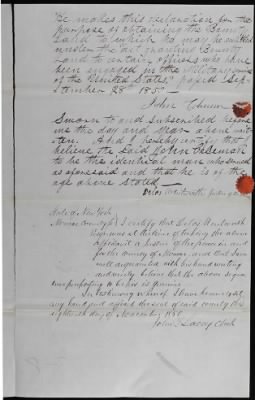 He makes this declaration for the
purpose of obtaining the Bounty
Land to which he may be entitled
under the act granting Bounty
Land to certain officers who have
been engaged in the Military service
of the United States, passed Sep-
tember 28th 1850
John
Sworn to and subscribed before
me the day and year above writ-
ten. And I hereby certify that I
believe the said John
to be the identical man who served
as aforesaid and that he is of the
age above stated
State of New York
Monroe County I certify that Wentworth
Esqr. was at the time of taking the above
Affidavit a Justice of the Peace in and
for the county of Monroe and that I am
well acquainted with his handwriting
and verily believe that the above signa-
ture purporting to be his is genuine
In testimony whereof I have hereunto set
my hand and affixed the seal of said county this
eighteenth day of November 1850
John C Clerk